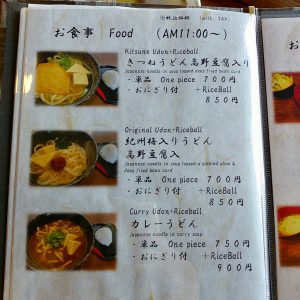 ※税込価格 (with TAX)
お食事 Food (AM11:00～)
Kitsune Udon+Riceball
きつねうどん高野豆腐入り
Japanese noodle in soup topped deep fried bean curd
・単品 One piece 700円
・おにぎり付 +RiceBall
850円
Original Udon+Riceball
紀州梅入りうどん
高野豆腐入
Japanese noodle in soup topped a pickled plum &
deep fried bean curd
・単品 One piece 700円
・おにぎり付 +RiceBall
850円
Curry Udon+Riceball
カレーうどん
Japanese noodle in curry soup
・単品 One piece 750円
・おにぎり付 +RiceBall
900円